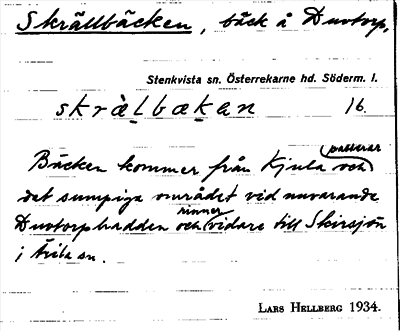 Skrällbäcken, bäck å Duvtorp,
Stenkvista sn. Österrekarne hd. Söderm. l.
skrälbækan 16.
Bäcken kommer från Kjula och passerar
det sumpiga området vid nuvarande
Duvtorpladden och rinner vidare till Skirsjön
i Ärila sn.
LARS HELLBERG 1934.